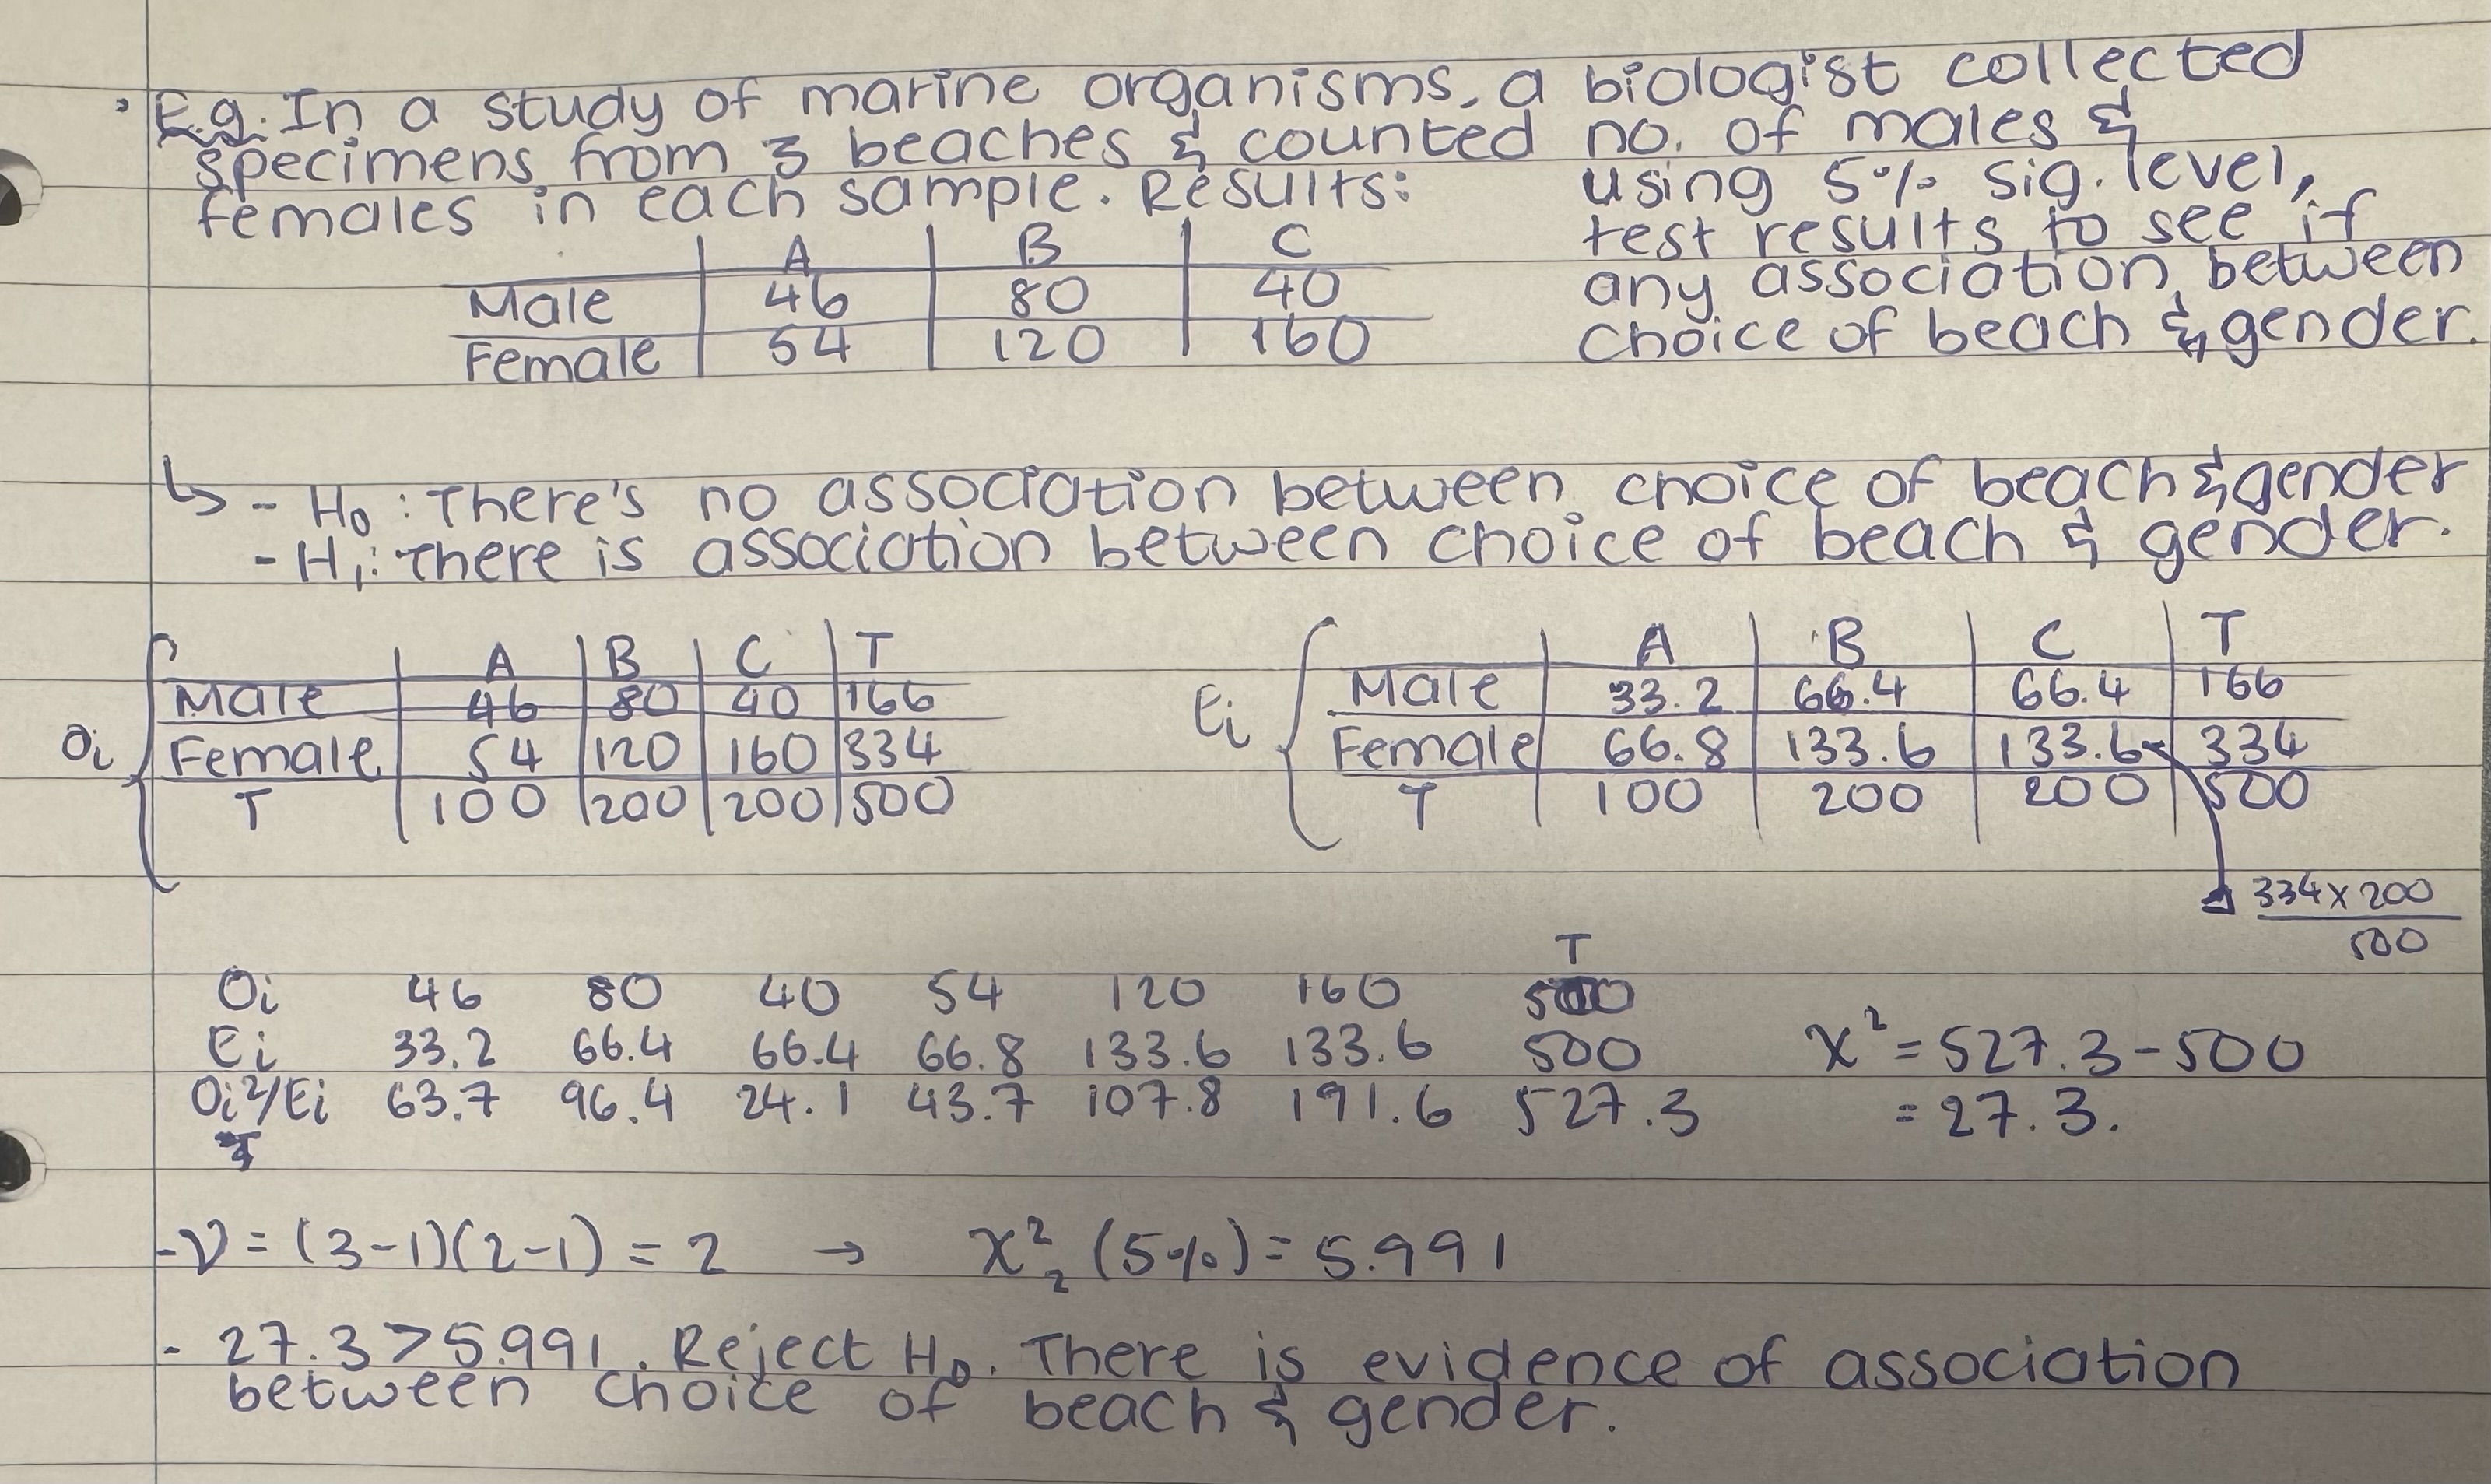 E.g. In a study of marine organisms, a biologist collected
specimens from 3 beaches & counted no. of males &
females in each sample. Results:
using 5% sig. level,
test results to see if
any association between
choice of beach & gender.
A B C
Male 46 80 40
Female 54 120 160
↳ - H₀ : There's no association between choice of beach & gender
- H₁: There is association between choice of beach & gender.
Oi
A B C T
Male 46 80 40 166
Female 54 120 160 334
T 100 200 200 500
Ei
A B C T
Male 33.2 66.4 66.4 166
Female 66.8 133.6 133.6 334
T 100 200 200 500
334 x 200
500
T
Oi 46 80 40 54 120 160 500
Ei 33.2 66.4 66.4 66.8 133.6 133.6 500
Oi²/Ei 63.7 96.4 24.1 43.7 107.8 191.6 527.3
χ² = 527.3 - 500
= 27.3.
- ν = (3-1)(2-1) = 2 → χ²₂ (5%) = 5.991
- 27.3 > 5.991. Reject H₀. There is evidence of association
between choice of beach & gender.